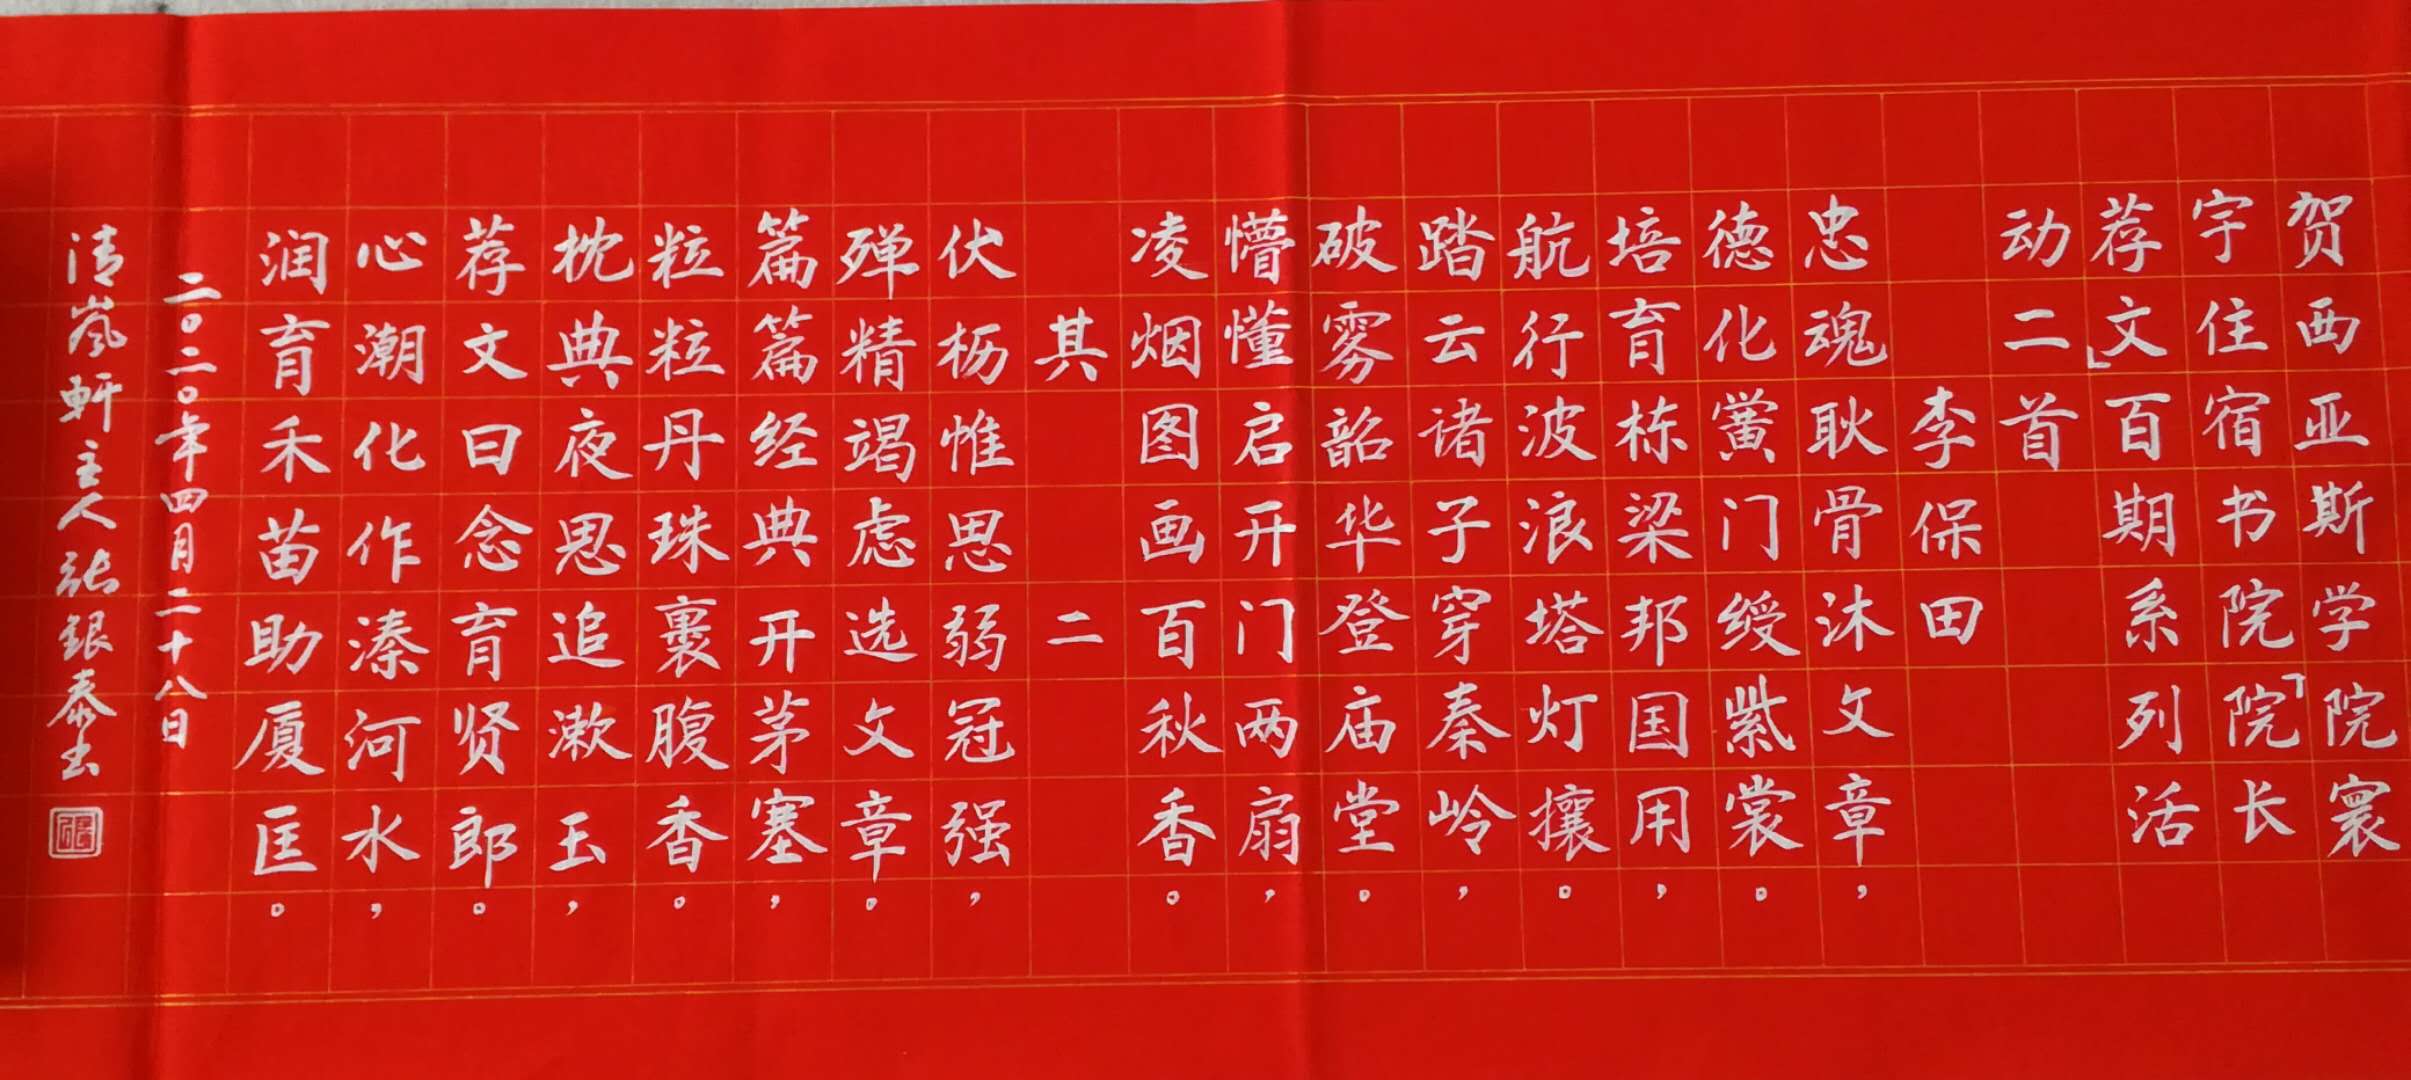 贺西亚斯学院寰
宇住宿书院院长「
荐文」百期系列活
动二首
李保田
忠魂耿骨沐文章，
德化黉门绶紫裳。
培育栋梁邦国用，
航行波浪塔灯攘。
踏云诸子穿秦岭，
破雾韶华登庙堂。
懵懂启开门两扇，
凌烟图画百秋香。
其二
伏枥惟思弱冠强，
殚精竭虑选文章。
篇篇经典开茅塞，
粒粒丹珠裹腹香。
枕典夜思追漱玉，
荐文日念育贤郎。
心潮化作溱河水，
润育禾苗助厦匡。
二〇二〇年四月二十八日
清嵐軒主人张银泰书